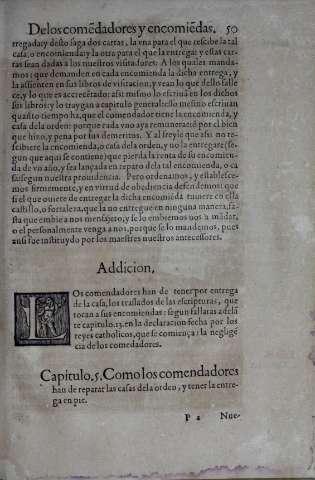 De los comēdadores y encomiēdas. 50
tregada y desto faga dos cartas, la vna para el que rescibe la tal
casa, o encomienda: y la otra para el que la entrega: y estas car
tas sean dadas a los nuestros visitadores: A los quales manda-
mos: que demanden en cada encomienda la dicha entrega, y
la assienten en sus libros de visitacion, y vean lo que desto falle
ce, y lo que es accrecẽtado: assi mismo lo escriuã en los dichos
sus libros: y lo traygan a capitulo general: esso mesmo escriuan
quãto tiempo ha, que el comendador tiene la encomienda, y
casa dela orden: porque cada vno aya remuneraciõ por el bien
que hizo, y pena por sus demeritos. Y al freyle que assi no re-
scibiere la encomienda, o casa dela orden, y no la entregare (se-
gun que aqui se contiene) que pierda la renta de su encomien-
da de vn año, y sea lançada en reparo dela tal encomienda, o ca
sa: segun nuestra prouidencia. Pero ordenamos, y establesce-
mos firmemente, y en virtud de obediencia defendemos: que
si el que ouiere de entregar la dicha encomiẽda tuuiere en ella
castillo, o fortaleza, que la no entregue en ninguna manera, fa-
sta que embie a nos mensajero, y se lo embiemos nos a mãdar,
o el personalmente venga a nos, porque se lo mandemos, pues
ansi fue instituydo por los maestres nuestros antecessores.
Addicion,
LOs comendadores han de tener por entrega
de la casa, los traslados de las escripturas, que
tocan a sus encomiendas: segun fallaras adelã
te capitulo.13. en la declaracion fecha por los
reyes catholicos, que se comiença: la neglige
cia de los comẽdadores.
Capitulo.5, Como los comendadores
han de reparar las casas dela orden, y tener la entre-
ga en pie.
P 2 Nue-